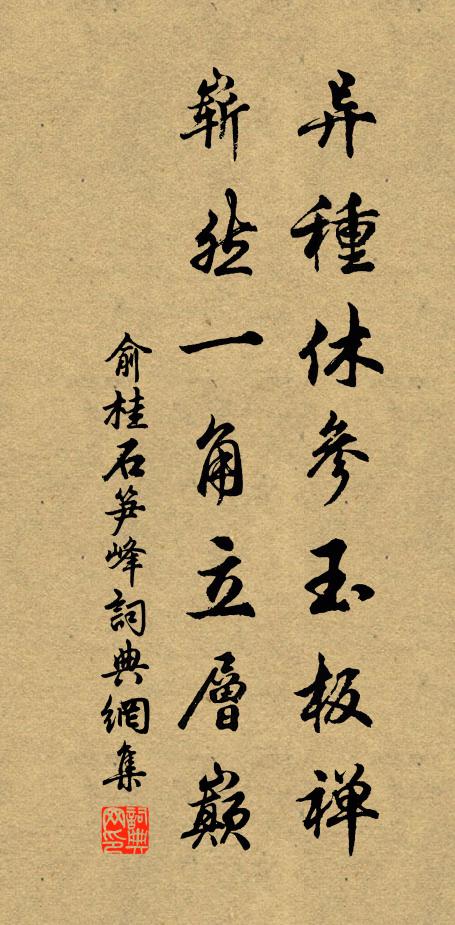 异種休參玉板禅
嶄然一角立層巔
俞桂石笋峰詞典網集
詞典网印